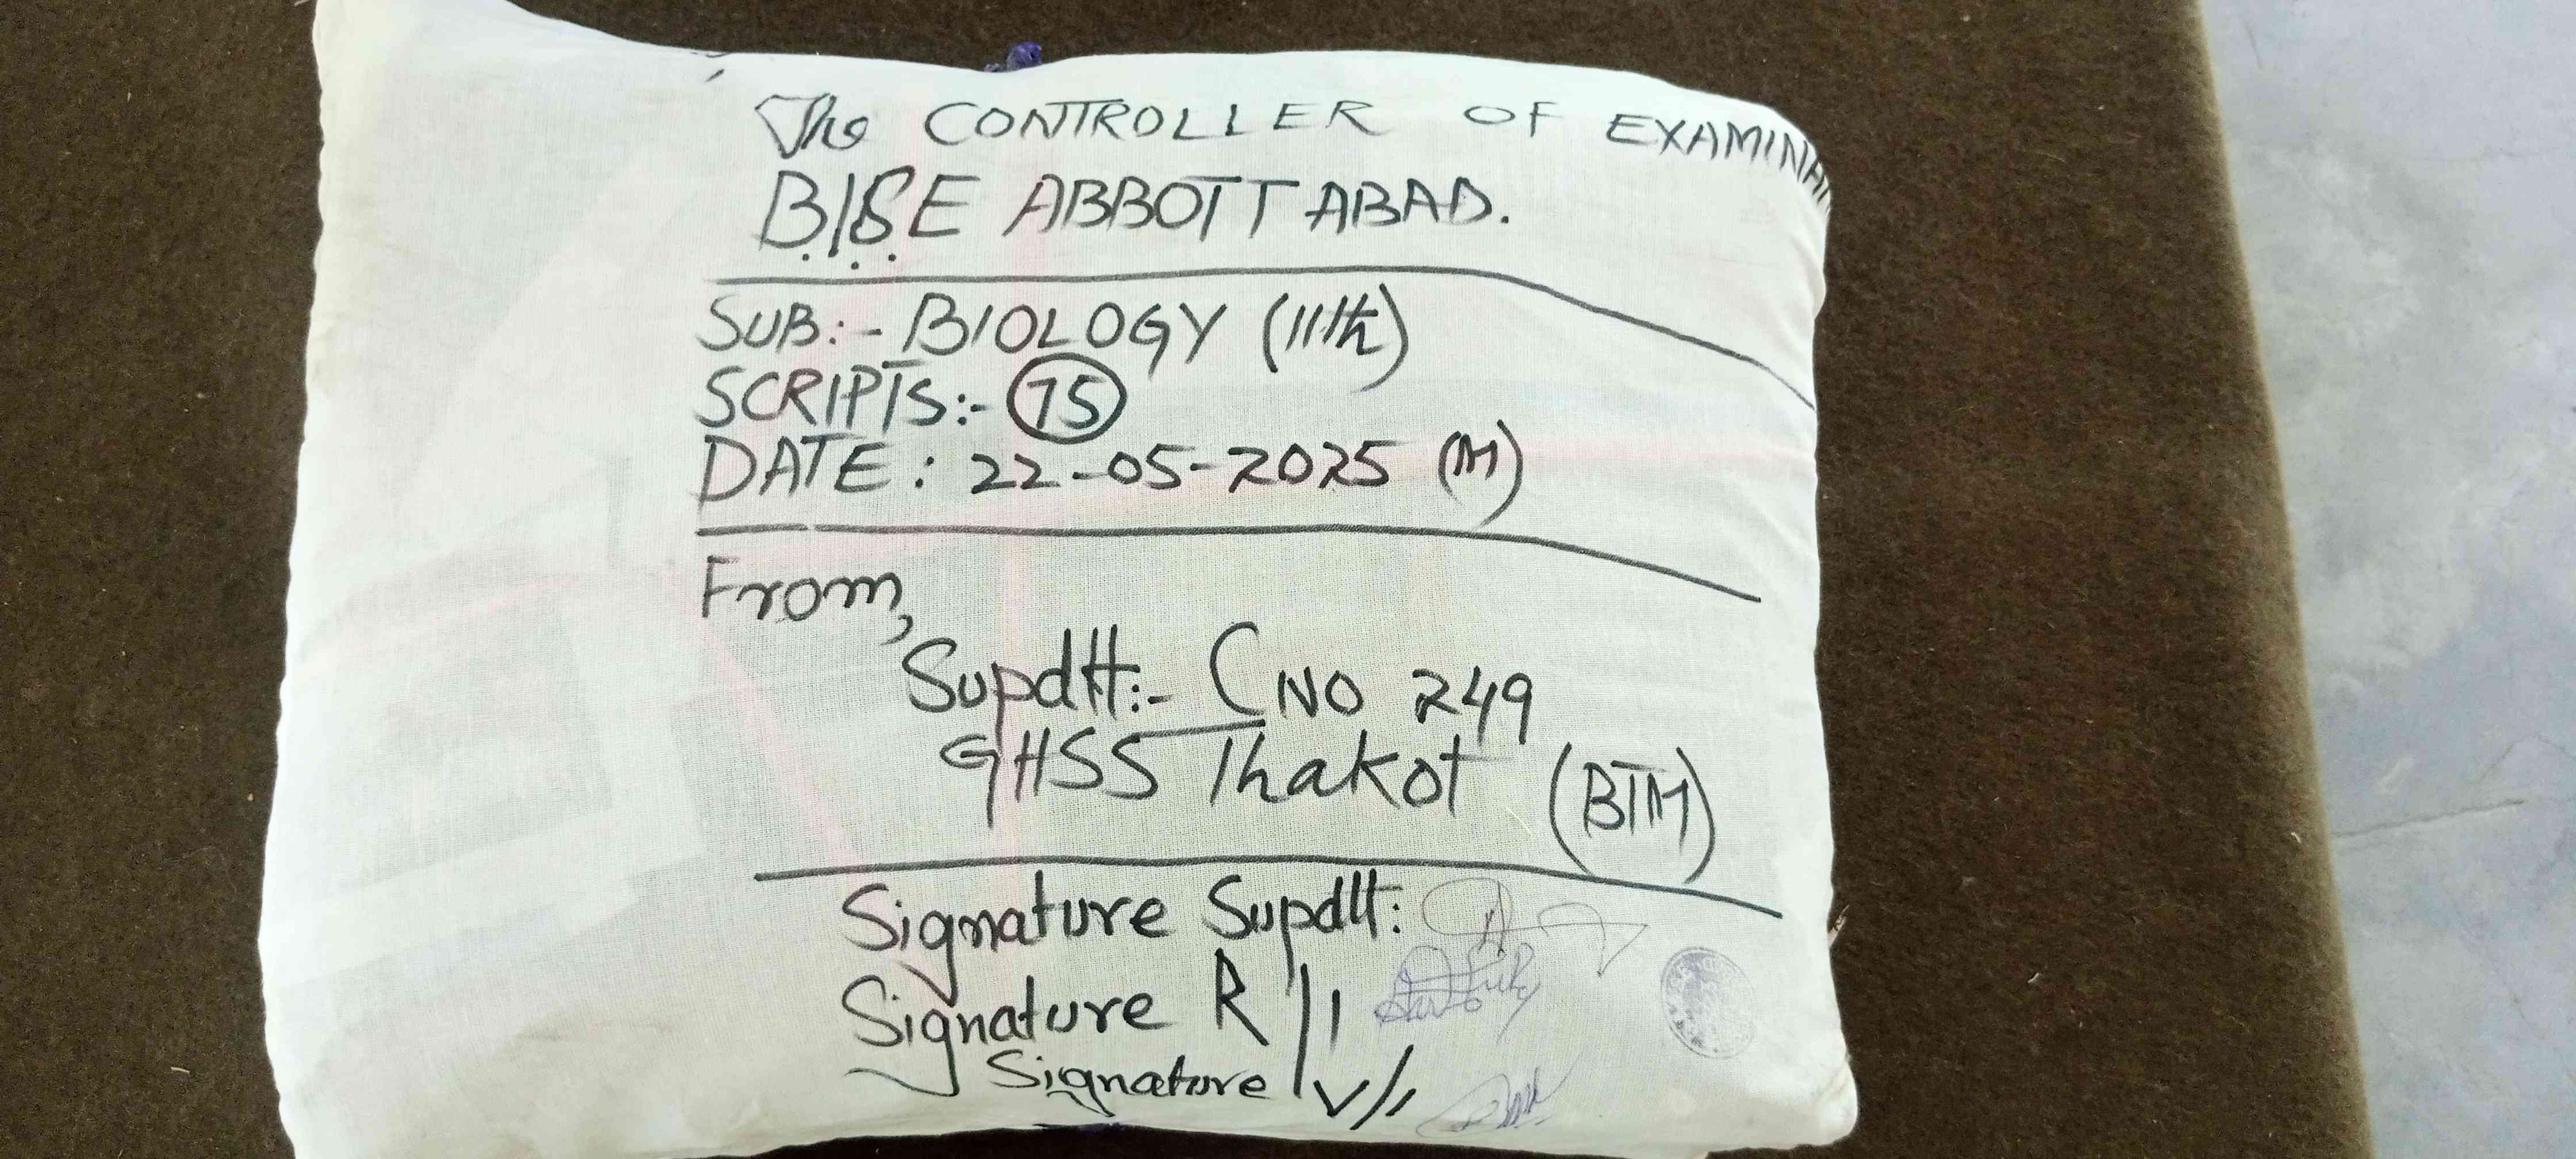 The CONTROLLER OF EXAMINA
B.I.S.E ABBOTTABAD.
SUB:- BIOLOGY (11th)
SCRIPTS:- 75
DATE: 22-05-2025 (M)
From,
Supdtt:- CNO 249
GHSS Thakot (BTM)
Signature Supdtt:
Signature R/I
Signature V/I